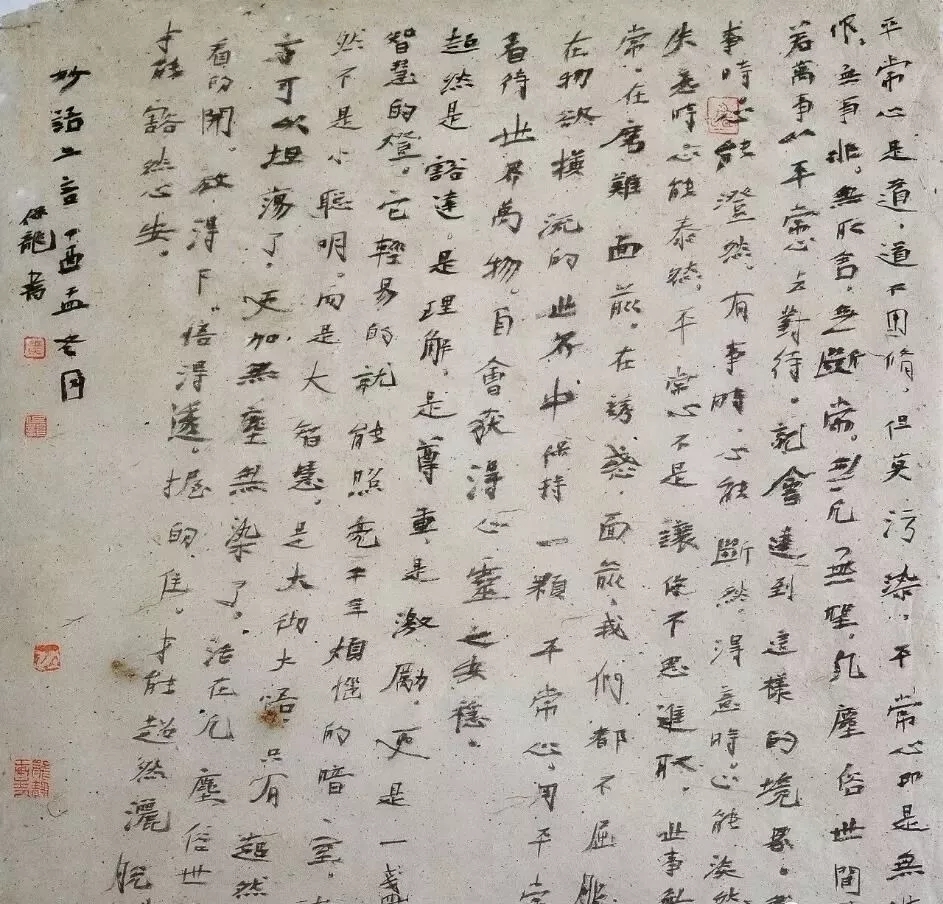 平常心是道，道不用脩，但莫污染，平常心即是無
作，無事非，無取舍，無斷常，無凡無聖，凡塵俗世間
若萬事以平常心去對待，就會達到這樣的境界。
事時心能澄然，有事時，心能斷然，得意時，心能淡然
失意時心能泰然，平常心不是讓你不思進取，世事
常，在磨難面前，在誘惑面前，我們都不屈服
在物欲橫流的世界中保持一顆平常心，用平常
看待世界萬物，自會获得心靈之安穩。
超然是豁達，是理解，是尊重，是激勵，更是一盞
智慧的燈，它輕易的就能照亮半生煩惱的暗室。
然不是小聰明，而是大智慧，是大徹大悟，只有超然
方可以坦荡了，更加無塵無染了。活在凡塵俗世
看的開，放得下。悟得透，握的住，才能超然灑脱
才能豁然心安。
妙語之言丁酉孟冬月
保龍書